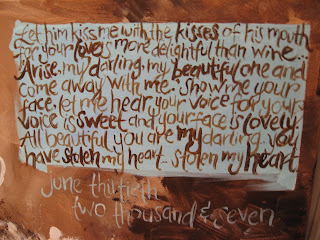 Let him kiss me with the kisses of his mouth
for your love is more delightful than wine...
Arise, my darling, my beautiful one and
come away with me. show me your
face, let me hear your voice for your
voice is sweet and your face is lovely
All beautiful you are my darling... you
have stolen my heart... stolen my heart
june thirtieth
two thousand & seven